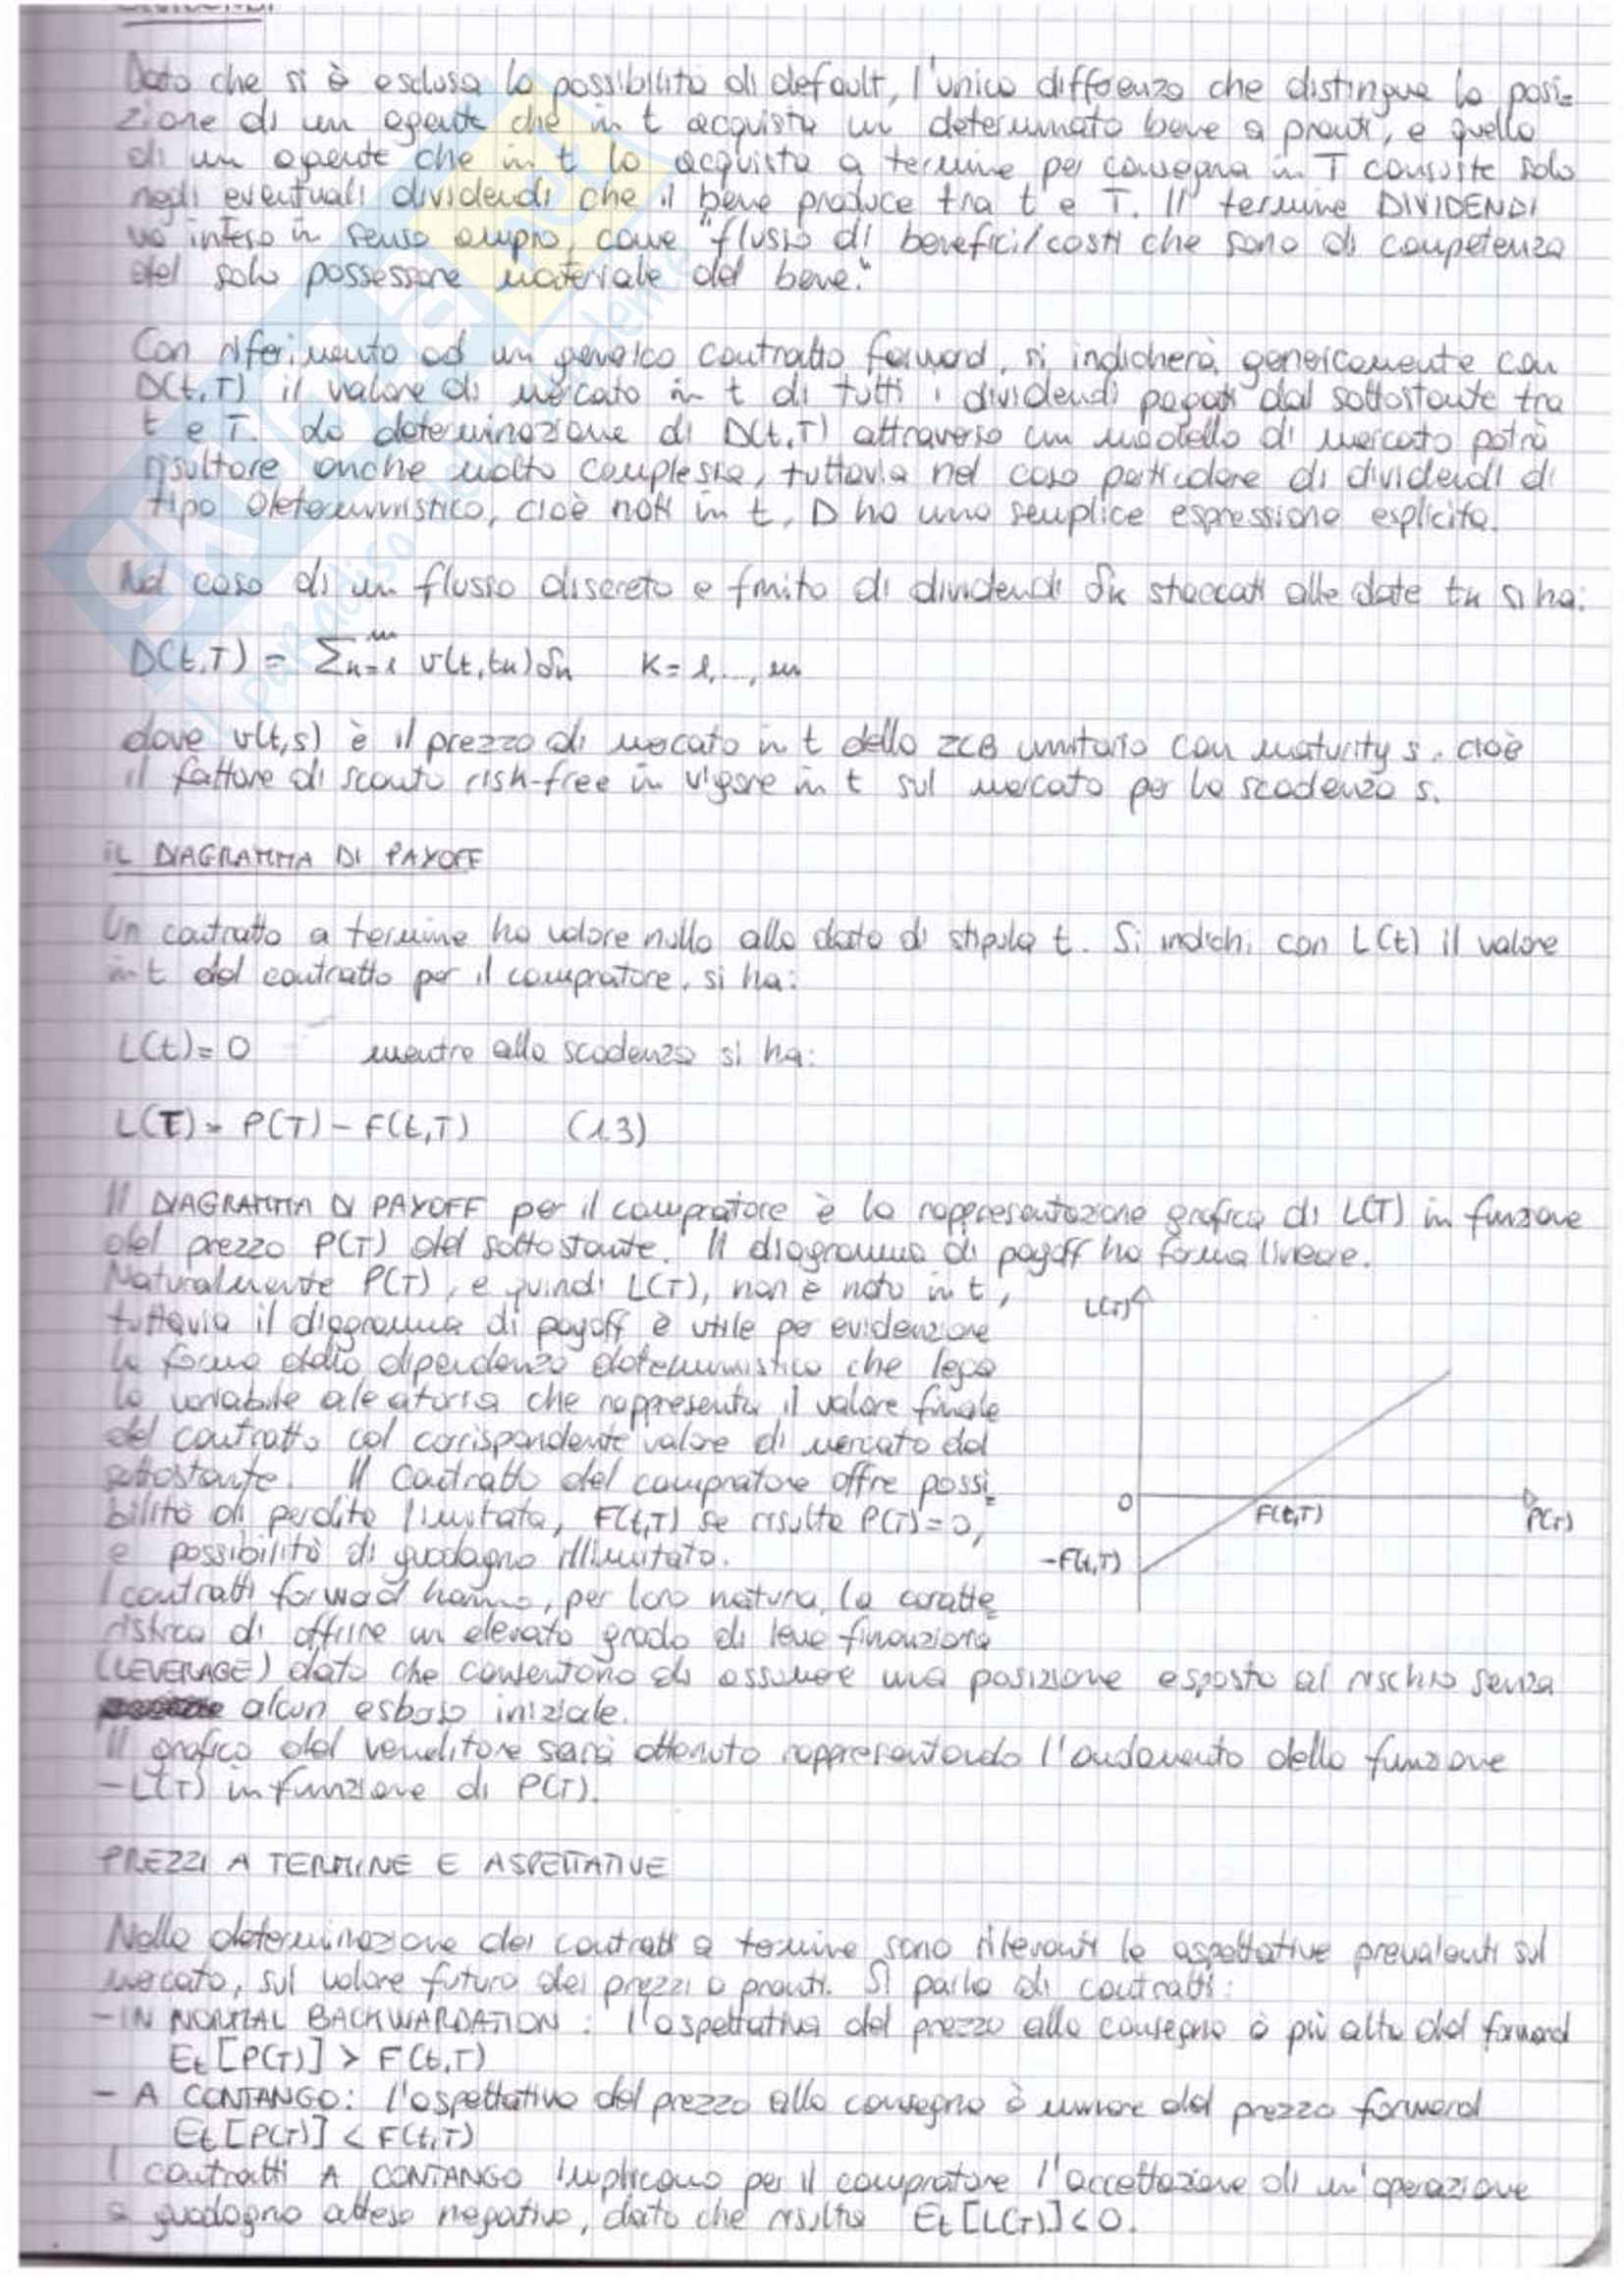 DIVIDENDI
Dato che si è esclusa la possibilità di default, l'unica differenza che distingue la posi=
zione di un agente che in t acquista un determinato bene a pronti, e quella
di un agente che in t lo acquista a termine per consegna in T consiste solo
negli eventuali dividendi che il bene produce tra t e T. Il termine DIVIDENDI
va inteso in senso ampio, come "flusso di benefici/costi che sono di competenza
del solo possessore materiale del bene."
Con riferimento ad un generico contratto forward, si indicherà genericamente con
D(t,T) il valore di mercato in t di tutti i dividendi pagati dal sottostante tra
t e T. La determinazione di D(t,T) attraverso un modello di mercato potrà
risultare anche molto complessa, tuttavia nel caso particolare di dividendi di
tipo deterministico, cioè noti in t, D ha una semplice espressione esplicita.
Nel caso di un flusso discreto e finito di dividendi δk staccati alle date tk si ha:
D(t,T) = Σk=1^m v(t,tk)δk K=1,...,m
dove v(t,s) è il prezzo di mercato in t dello ZCB unitario con maturity s, cioè
il fattore di sconto risk-free in vigore in t sul mercato per la scadenza s.
IL DIAGRAMMA DI PAYOFF
Un contratto a termine ha valore nullo alla data di stipula t. Si indichi con L(t) il valore
in t del contratto per il compratore, si ha:
L(t)= 0 mentre alla scadenza si ha:
L(T)= P(T) - F(t,T) (1.3)
Il DIAGRAMMA DI PAYOFF per il compratore è la rappresentazione grafica di L(T) in funzione
del prezzo P(T) del sottostante. Il diagramma di payoff ha forma lineare.
Naturalmente P(T), e quindi L(T), non è noto in t,
tuttavia il diagramma di payoff è utile per evidenziare
la forma della dipendenza deterministica che lega
la variabile aleatoria che rappresenta il valore finale
del contratto col corrispondente valore di mercato del
sottostante. Il contratto del compratore offre possi=
bilità di perdita limitata, F(t,T) se risulta P(T)=0,
e possibilità di guadagno illimitato.
I contratti forward hanno, per loro natura, la caratte=
ristica di offrire un elevato grado di leva finanziaria
(LEVERAGE) dato che consentono di assumere una posizione esposta al rischio senza
alcun esborso iniziale.
Il grafico del venditore sarà ottenuto rappresentando l'andamento della funzione
-L(T) in funzione di P(T).
L(T)
0
F(t,T)
P(T)
-F(t,T)
PREZZI A TERMINE E ASPETTATIVE
Nella determinazione dei contratti a termine sono rilevanti le aspettative prevalenti sul
mercato, sul valore futuro dei prezzi a pronti. Si parla di contratti:
- IN NORMAL BACKWARDATION: l'aspettativa del prezzo alla consegna è più alta del forward
Et [P(T)] > F(t,T)
- A CONTANGO: l'aspettativa del prezzo alla consegna è minore del prezzo forward
Et [P(T)] < F(t,T)
I contratti A CONTANGO implicano per il compratore l'accettazione di un'operazione
a guadagno atteso negativo, dato che risulta Et [L(T)] < 0.